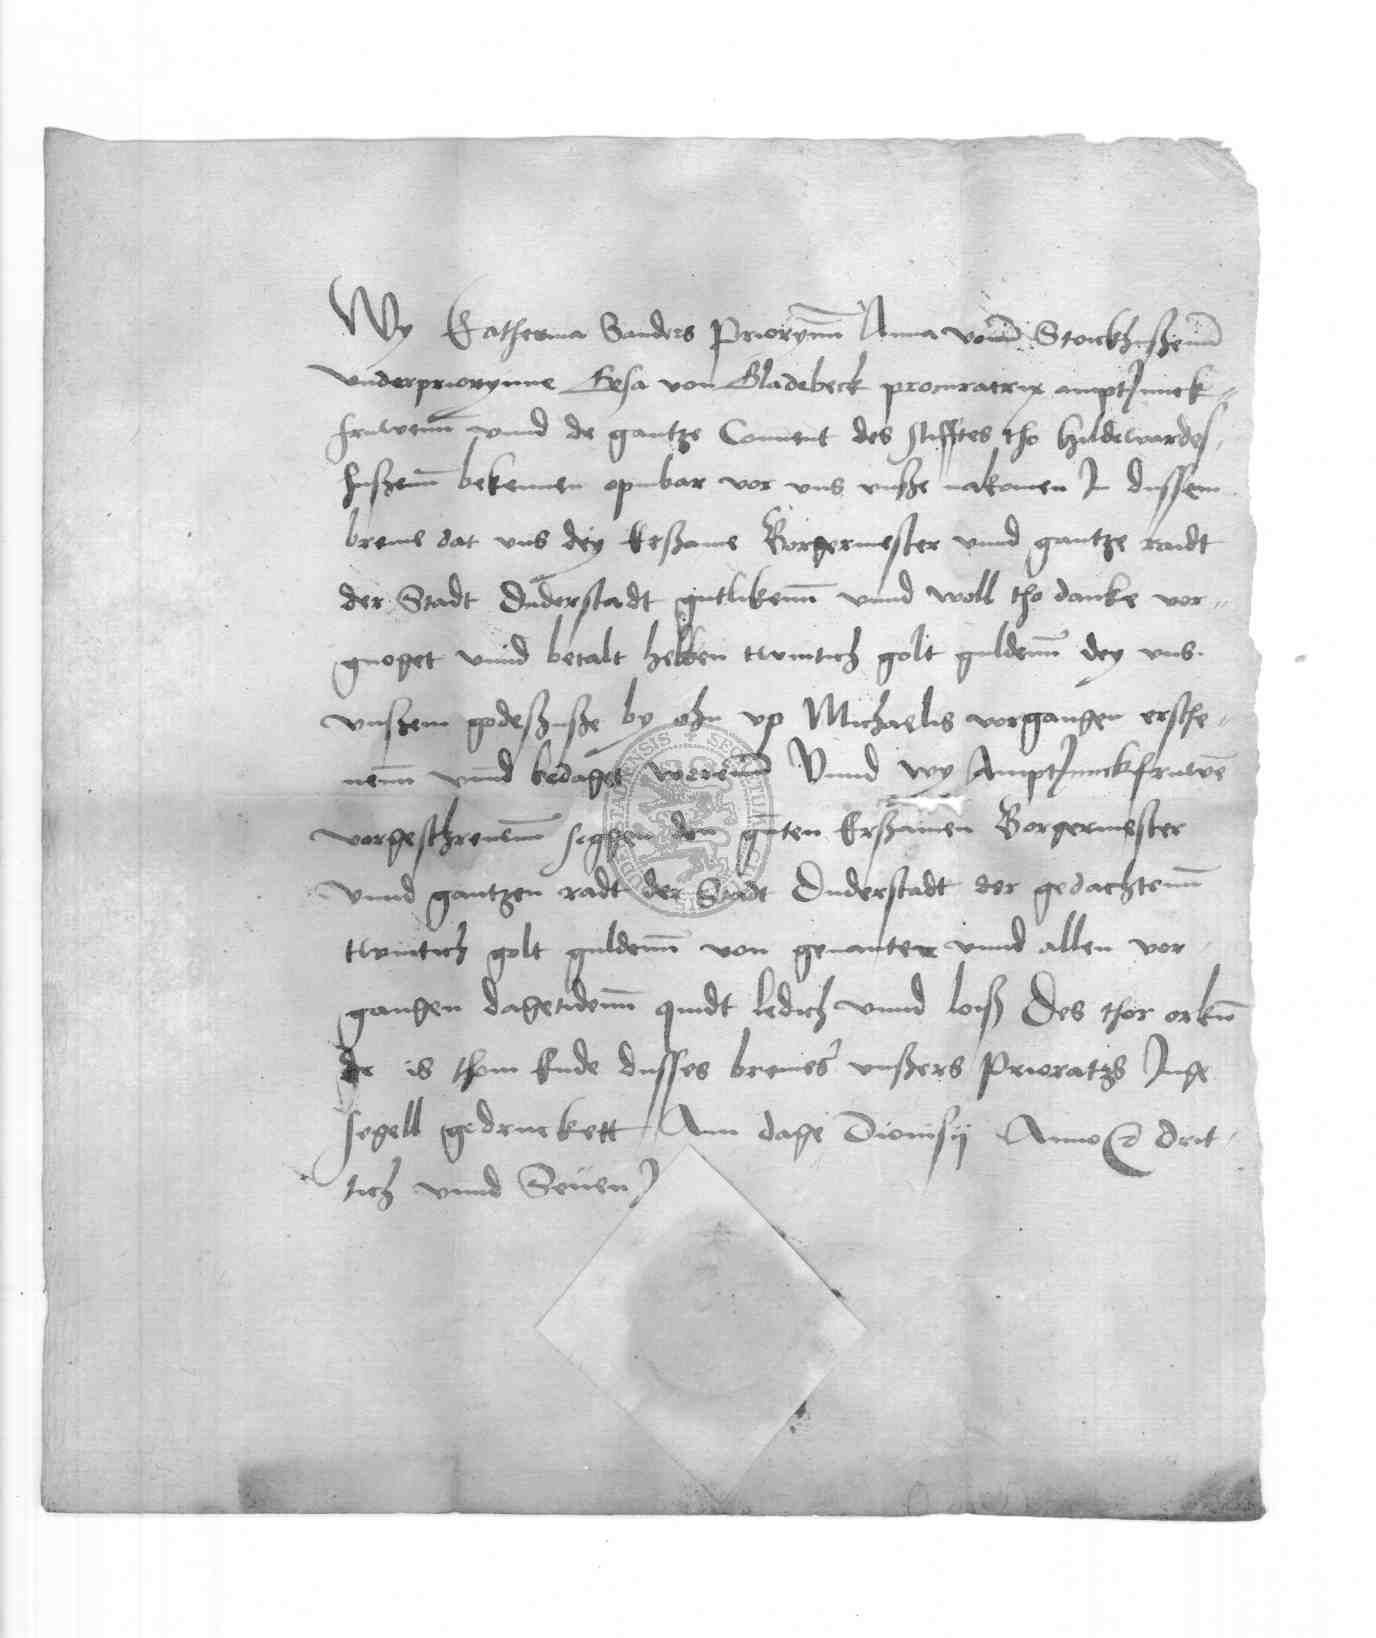 Wy Katherina Sanders Priorynn Anna vonn Stockhußenn
vnderpriorynne Ersa von Gladebeck procuratrix amptJunck-
fruwenn vnnd de gantze Conuent des stifftes tho Hildewardes-
hußenn bekennen openbar vor vns vnße nakomen Jn dussem
breue dat vns dey Erßame Borgermester vnnd gantze raidt
der Stadt Duderstadt gutlikenn vnnd woll tho dancke vor-
gnoget vnnd betalt hebben twintich golt guldenn dey vns
vnßem godeßhuße by ohn vp Michaelis vorgangen ersche-
nenn vnnd bedaget werenn Vnnd wy AmptJunckfruwen
vorgeschreuenn seggen den guten Erßamen Borgermester
vnnd gantzen radt der Stadt Duderstadt der gedachtenn
twintich golt guldenn von genanter vnnd allen vor-
gangen dagetidenn quidt ledich vnnd loiß Des thor orkun
de is thom Ende dusses breues vnßers Priorathß Inge
segell gedruckett Am dage Dionisij Anno drit-
tich vnnd Seuen
SECRETUM DUDERSTADENSIS